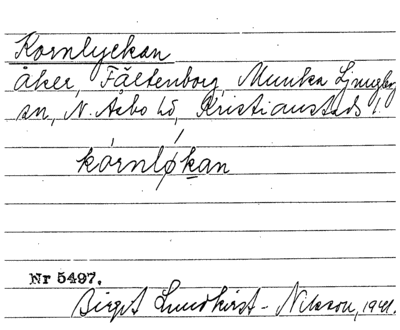 Kornlyckan
åker, Fältenborg, Munka Ljungby
sn, N. Åsbo hd, Kristianstads l.
kórnlǿkan
Nr 5497.
Birgit Lundkvist-Nilsson, 1941.